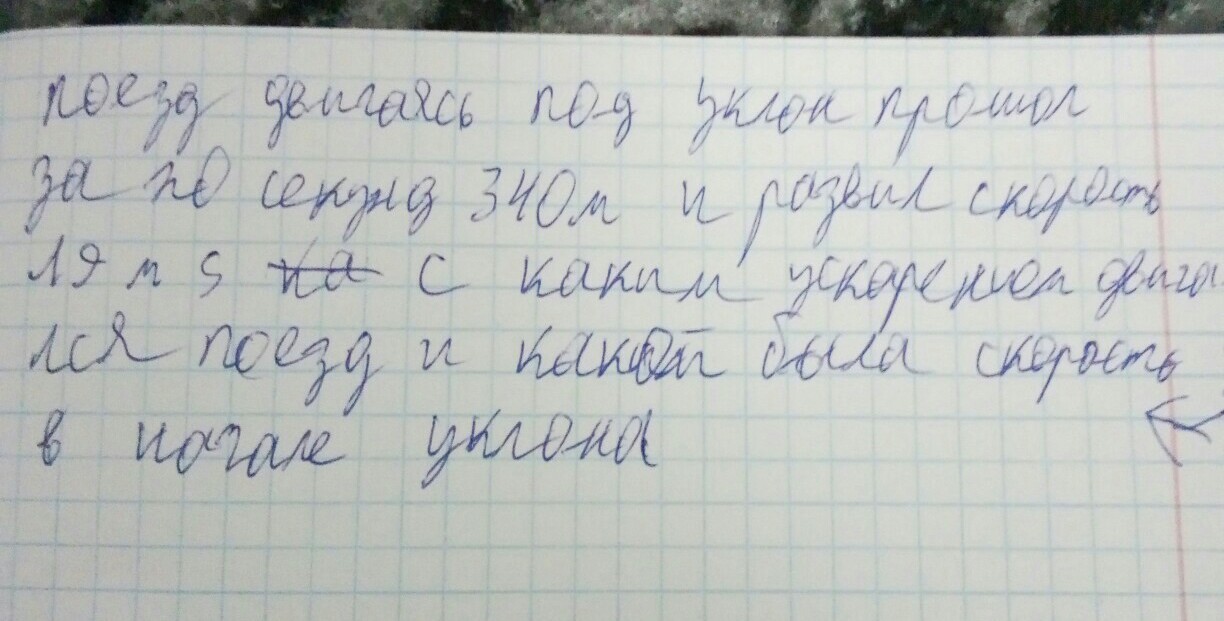 поезд двигаясь под уклон прошол
за 20 секунд 340м и развил скорость
19 м s на с каким ускорением двига
лся поезд и какой была скорость
в начале уклона